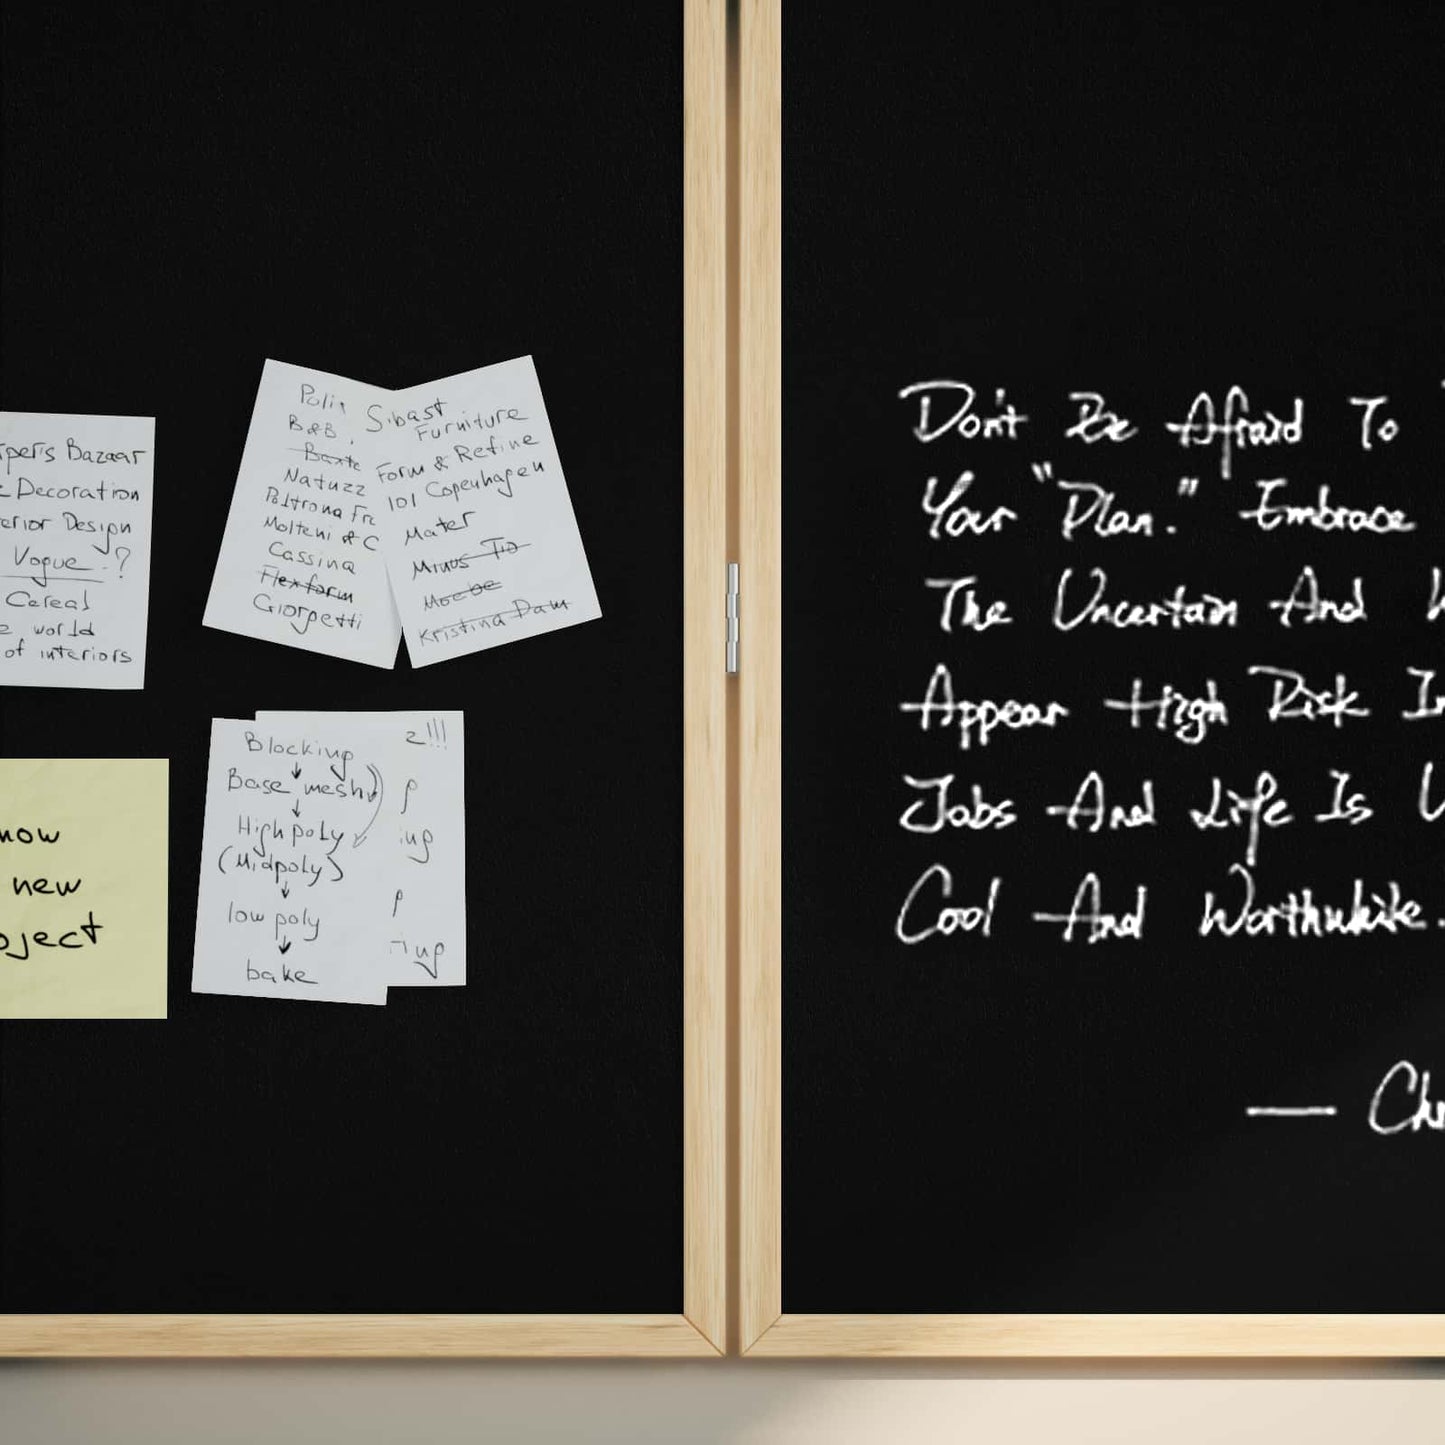 Bazaar
Decoration
Design
Vogue ?
Cereal
world
of interiors
B&B
Baxte
Natuzz
Poltrona Fr
Molteni & C
Cassina
Flexform
Giorgetti
Sibast
Furniture
Form & Refine
101 Copenhagen
Mater
Minus Tio
Moebe
Kristina Dam
new
Blocking
Base mesh
High poly
(Midpoly)
low poly
bake
2!!!
Don't Be Afraid To
Your "Plan." Embrace
The Uncertain And
Appear High Risk In
Jobs And Life Is
Cool And Worthwhile.
— Ch